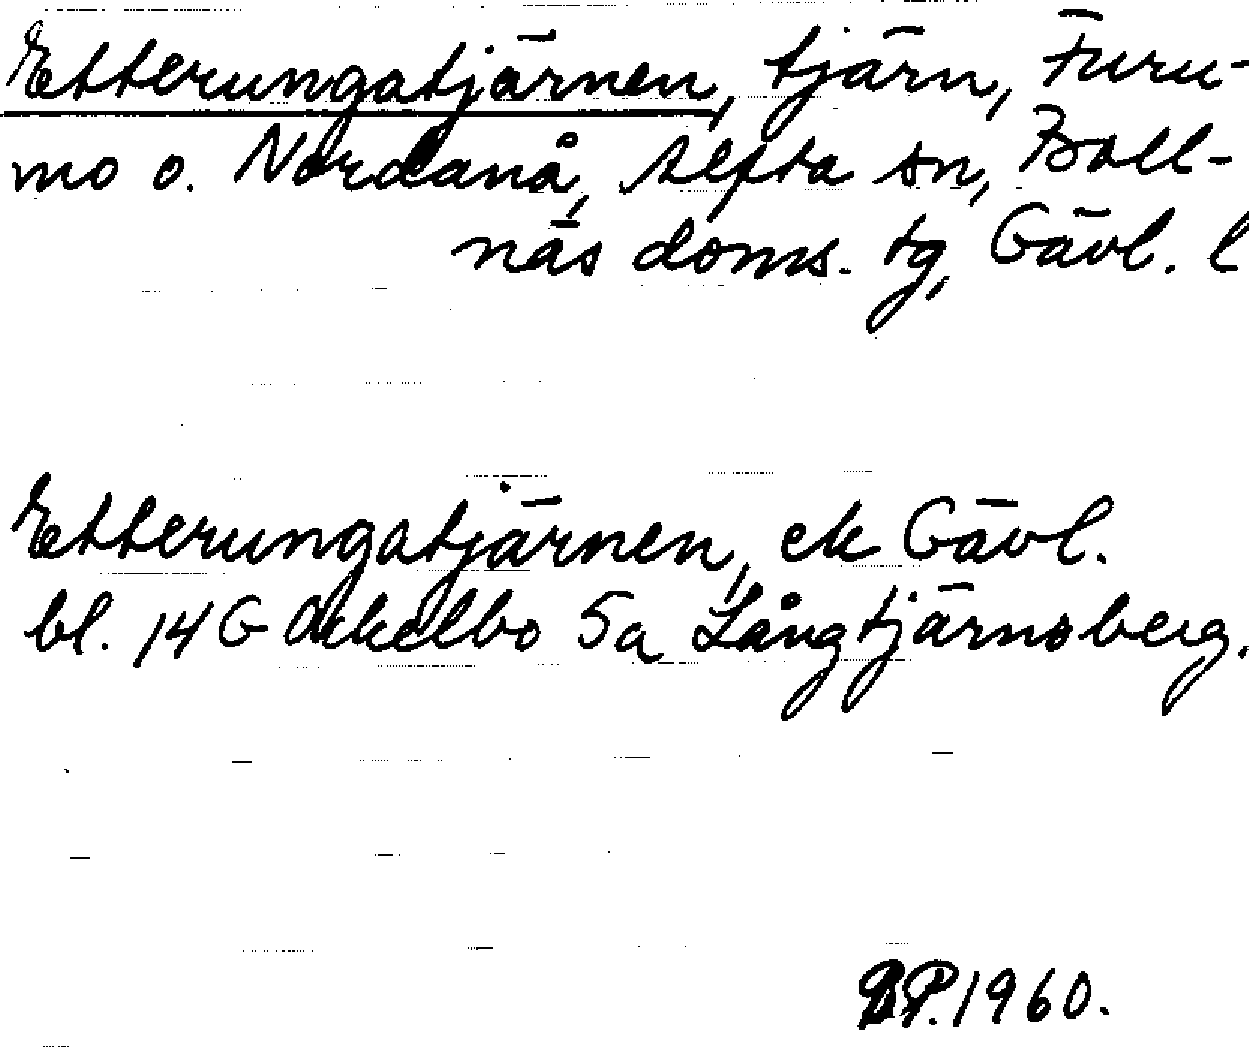 Etterungatjärnen, tjärn, Furu-
mo o. Nordanå, Alfta sn, Boll-
näs doms. tg, Gävl. l
Etterungatjärnen, ek Gävl.
bl. 14 G Ockelbo 5a Långtjärnsberg.
P. 1960.